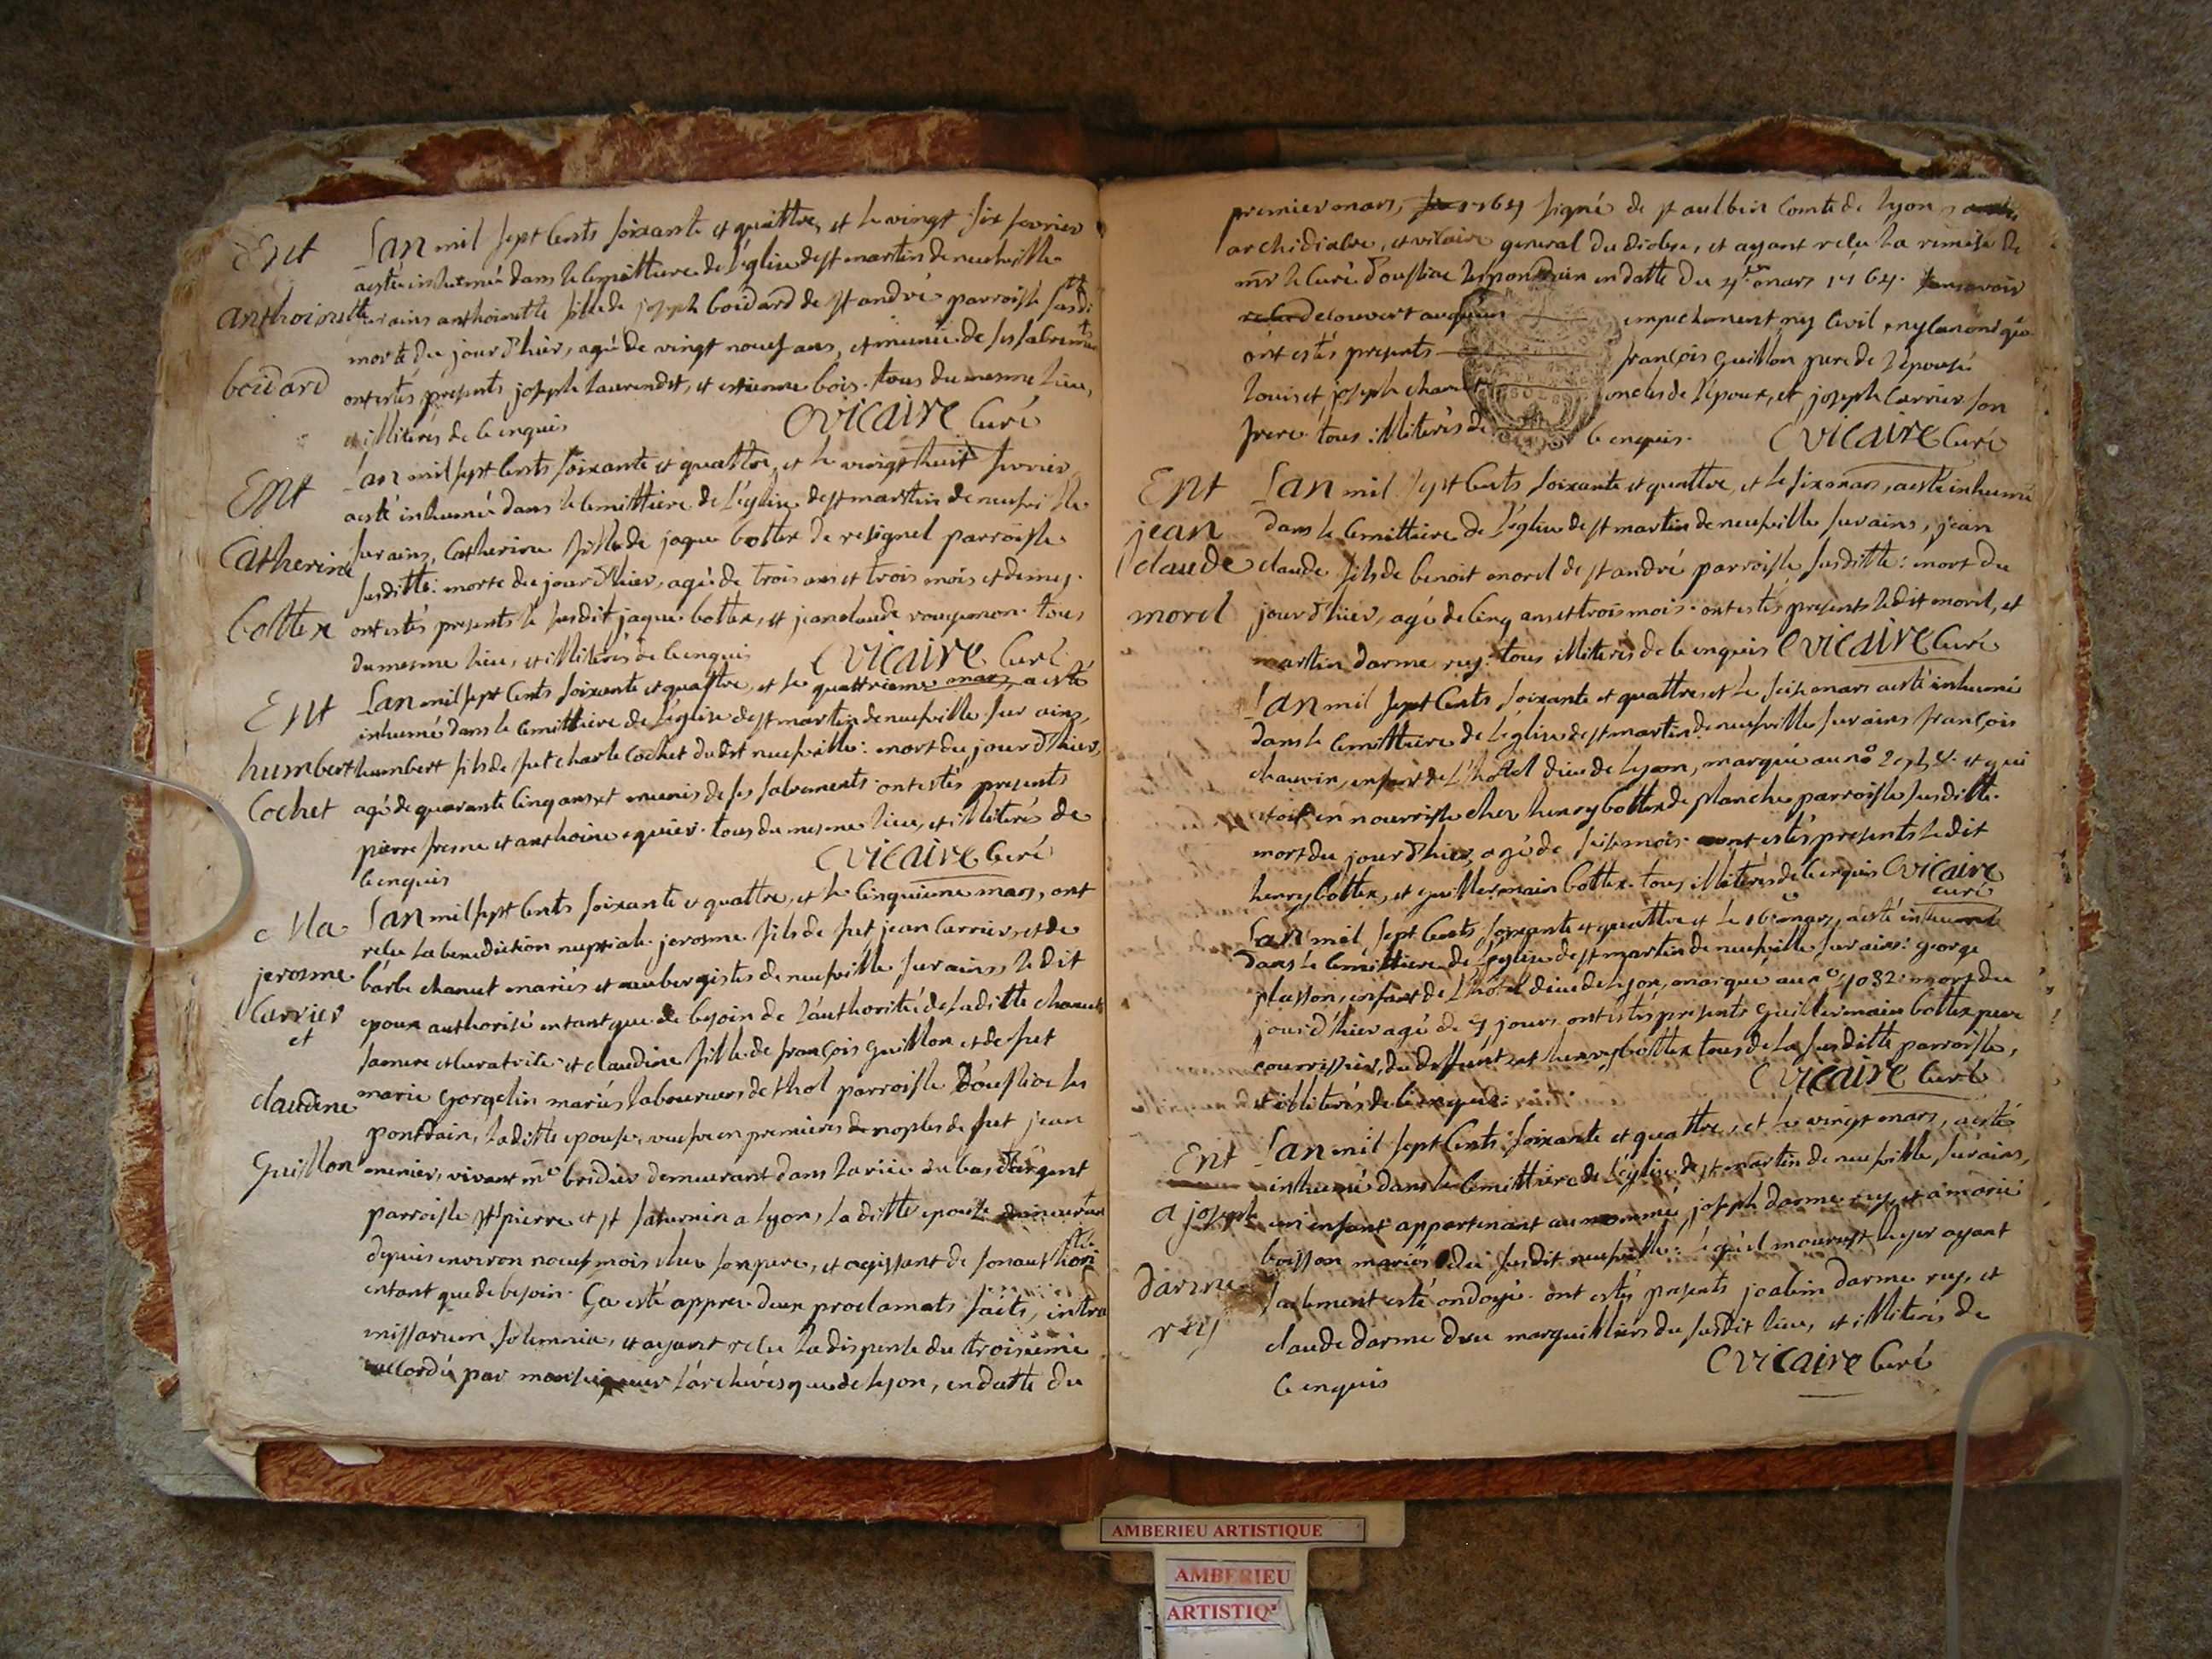 Ent
anthoinette
boidard
Lan mil sept Cents soixante et quattre, et le vingt six fevrier
a esté inhumée dans le Cemittiere de l'église de st martin de neufville
sur ains anthoinette fille de joseph boidard de st andré parroisse susditte
morte du jour d'hier, agée de vingt neuf ans, et munie de ses sacremts
ont estés présents joseph laurendet, et estienne bois. tous du mesme lieu,
et illiterés de ce enquis
Cvicaire Curé
Ent
Catherine
Cottex
Lan mil sept Cents soixante et quattre, et le vingt huit fevrier
a esté inhumée dans le Cemittiere de l'église de st martin de neufville
sur ains, Catherine fille de jaque Cottex de resignel parroisse
susditte: morte du jour d'hier, agée de trois ans et trois mois et demy.
ont estés presents le susdit jaque Cottex, et jean claude rougemon. tous
du mesme lieu, et illiterés de ce enquis
Cvicaire Curé
Ent
humbert
Cochet
Lan mil sept Cents soixante et quattre, et le quattrieme mars, a esté
inhumé dans le Cemittiere de l'église de st martin de neufville sur ains,
humbert fils de fut charle Cochet du dit neufville: mort du jour d'hier,
agé de quarante Cinq ans, et munis de ses sacrements ont estés presents
pierre fresne et anthoine equier. tous du mesme lieu, et illiterés de
ce enquis
Cvicaire Curé
Ma
jerosme
Carrier
et
claudine
Guillon
Lan mil sept Cents soixante et quattre, et le Cinquieme mars, ont
relu la benediction nuptiale jerosme fils de fut jean Carrier, et de
barbe chanut mariés et aubergistes de neufville sur ains, le dit
epoux authorisé en tant que de besoin de l'authorité de laditte chanut
sa mere et curatrice: et claudine fille de françois Guillon et de fut
marie Gorgelin mariés laboureurs de thol parroisse Doussiac les
pontdain, laditte epouse, veufve en premieres de noples de fut jean
menier, vivant me bridier demeurant dans la rüe du bas d'argent
parroisse st pierre et st saturnin a Lyon, la ditte epouse demeurant
depuis environ neuf mois chez son pere, et agissant de son authorité
entant que de besoin. Ça esté apprez deux proclamats faits, intra
missarum solemnia, et ayant relu la dispense du troisieme
accordée par monseigneur l'archevesque de Lyon, en datte du
premier mars, 1764 signé de st aulbin Comte de Lyon
archidiacre, et vicaire general du diocese, et ayant relu la remise de
mr le Curé Doussiac les pondain en datte du 4e mars 1764.
decouvert aucun empechement ny Civil, ny Canonique
ont estés presents françois Guillon pere de l'epouse
Louis et joseph chanut oncles de l'epoux, et joseph Carrier son
frere tous illiterés de ce enquis.
Cvicaire Curé
Ent
jean
claude
morel
Lan mil sept Cents soixante et quattre, et le six mars, a esté inhumé
dans le Cemittiere de l'église de st martin de neufville sur ains, jean
claude fils de benoit morel de st andré parroisse susditte: mort du
jour d'hier, agé de Cinq ans et trois mois. ont estés presents ledit morel, et
martin darme rey: tous illiterés de ce enquis Cvicaire Curé
Lan mil sept Cents soixante et quattre, et le seize mars a esté inhumé
dans le Cemittiere de l'église de st martin de neufville sur ains françois
chauvin, enfant de l'hôtel dieu de Lyon, marqué au no et qui
etoit en nourrisse chez henry Cottex de planche parroisse susditte.
mort du jour d'hier, agé de seize mois. ont estés presents le dit
henry Cottex, et guillermain Cottex. tous illiterés de ce enquis Cvicaire
curé
Lan mil sept Cents soixante et quattre et le 16e mars, a esté inhumé
dans le Cemittiere de l'église de st martin de neufville sur ains: george
plasson, enfant de l'hôtel dieu de Lyon, marqué au no 1032: mort du
jour d'hier agé de 9 jours. ont estés présents guillermain Cottex pere
nourrissier, du deffunt, et henry Cottex tous de la susditte parroisse,
et illiterés de ce enquis.
Cvicaire Curé
Ent
a joseph
darme
rey
Lan mil sept Cents soixante et quattre, et le vingt mars, a esté
inhumé dans le Cemittiere de l'église de st martin de neufville sur ains,
un enfant appartenant au nommé joseph darme rey, et a marie
boisson mariés du susdit neufville: lequel mourust hyer ayant
seulement esté ondoyé. ont estés presents joachim darme rey, et
claude darme dru marguilliers du susdit lieu, et illiterés de
ce enquis
Cvicaire Curé
AMBERIEU ARTISTIQUE
AMBERIEU
ARTISTIQ